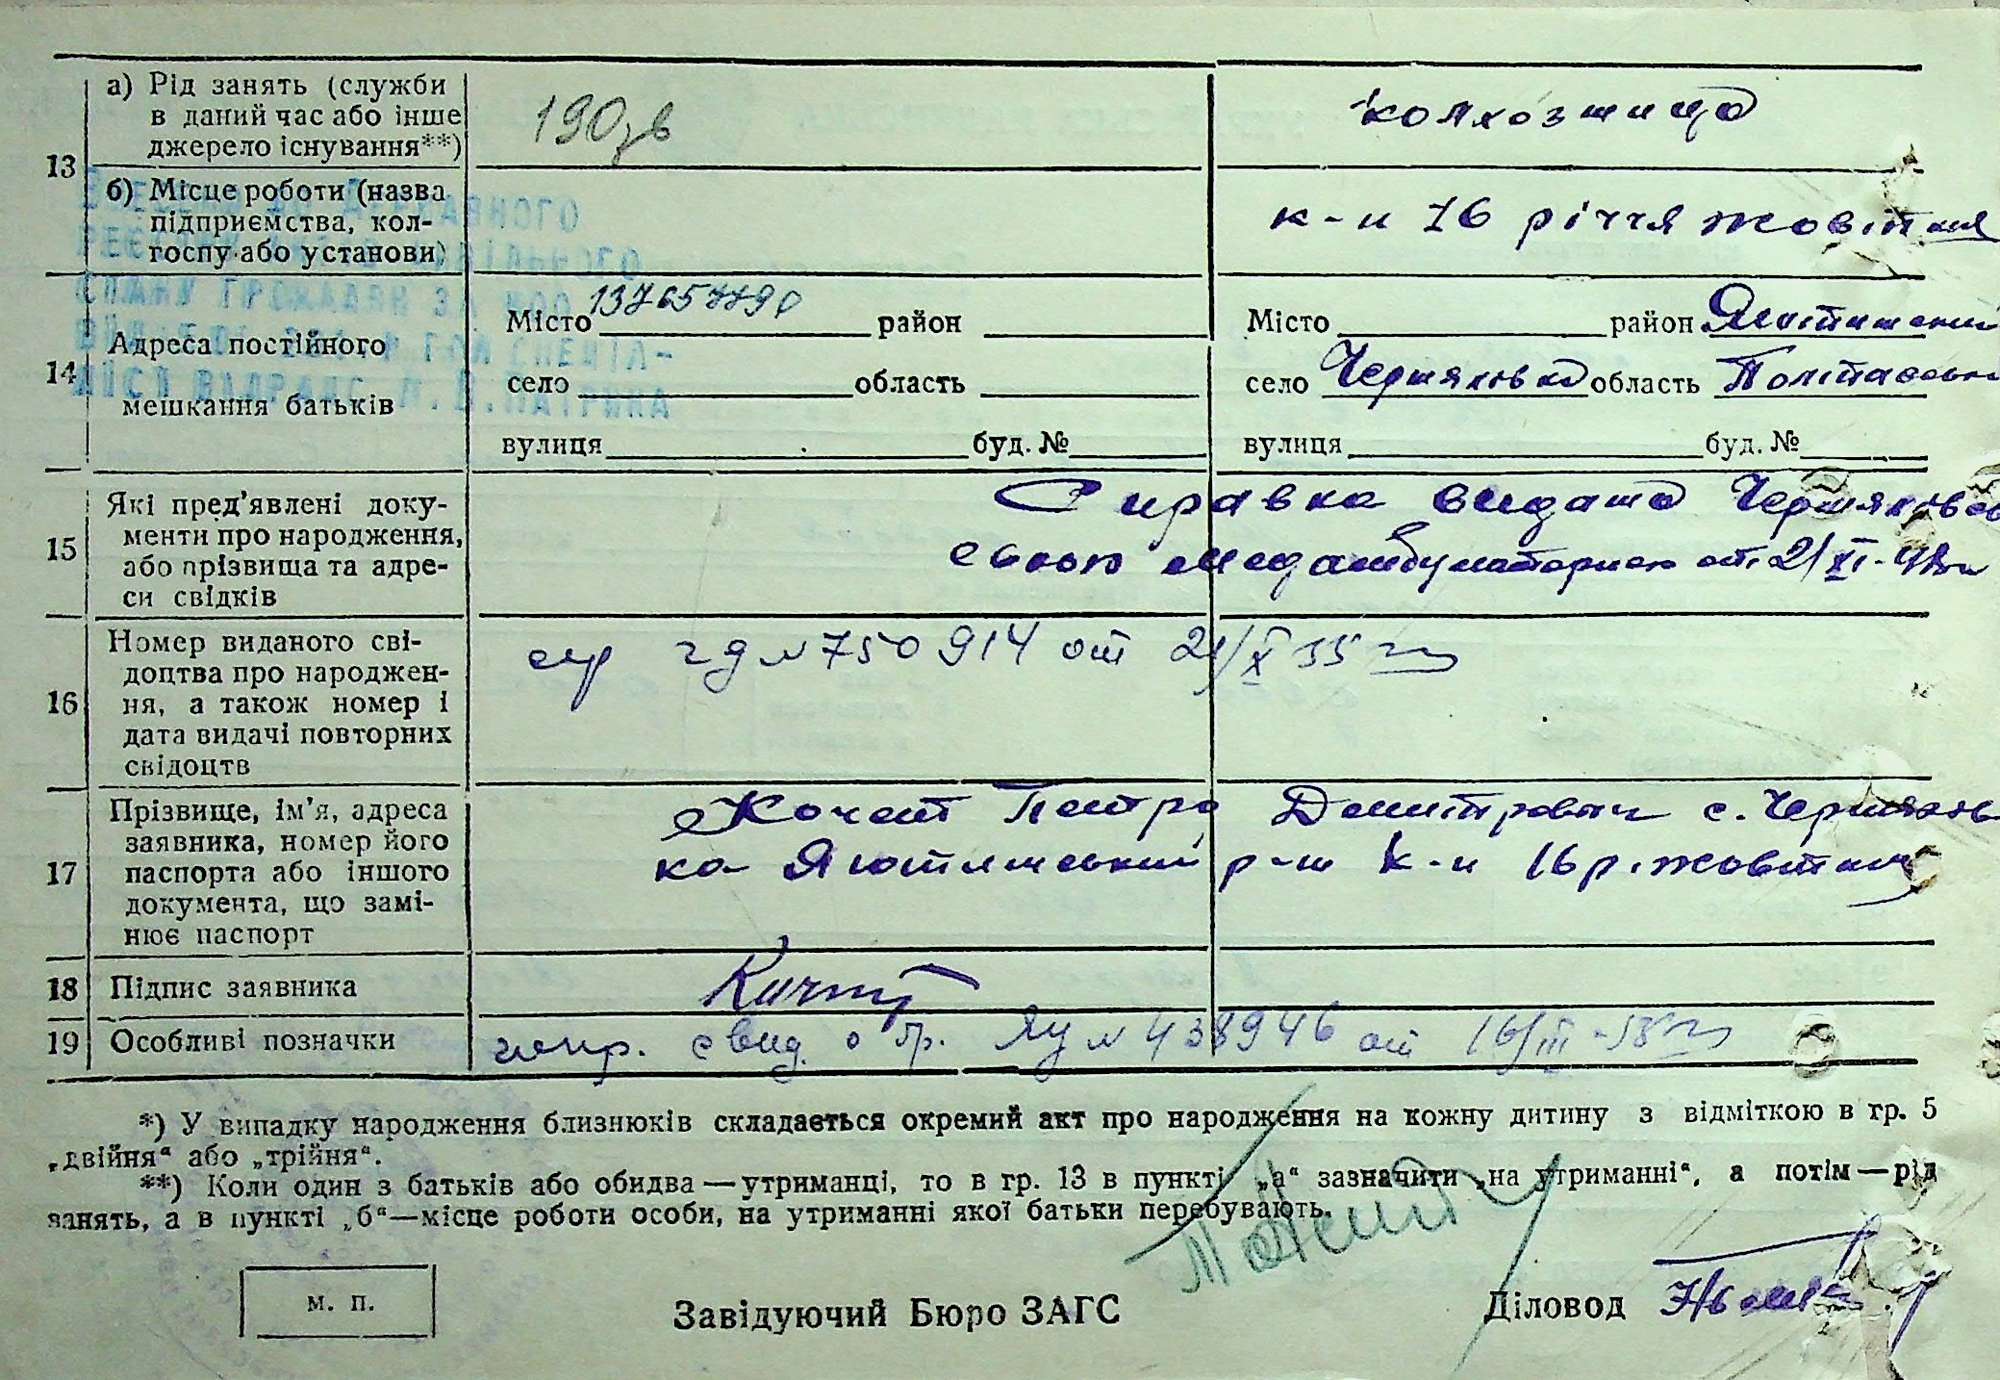 13
а) Рід занять (служби
в даний час або інше
джерело існування**)
190зв
колхозница
б) Місце роботи (назва
підприємства, кол-
госпу або установи)
к-п 16 річчя жовтня
14
Адреса постійного
мешкання батьків
Місто 137657790 район
село область
вулиця буд. №
Місто район Яготинський
село Черняховка область Полтавськ
вулиця буд. №
15
Які пред'явлені доку-
менти про народження,
або прізвища та адре-
си свідків
Справка видана Черняхов
ською медамбулаторією от 21/XI-
16
Номер виданого сві-
доцтва про народжен-
ня, а також номер і
дата видачі повторних
свідоцтв
№ 750914 от 21/X 55
17
Прізвище, ім'я, адреса
заявника, номер його
паспорта або іншого
документа, що замі-
нює паспорт
Кочет Петро Дмитрович с. Черняхов
ка Яготинський р-н к-п 16 р. жовтня
18
Підпис заявника
19
Особливі позначки
свид. о бр. ЯЦ № 438946 от 16/III-58
*) У випадку народження близнюків складається окремий акт про народження на кожну дитину з відміткою в гр. 5
„двійня“ або „трійня“.
**) Коли один з батьків або обидва—утриманці, то в гр. 13 в пункті „а“ зазначити „на утриманні“, а потім—рід
занять, а в пункті „б“—місце роботи особи, на утриманні якої батьки перебувають.
м. п.
Завідуючий Бюро ЗАГС
Діловод